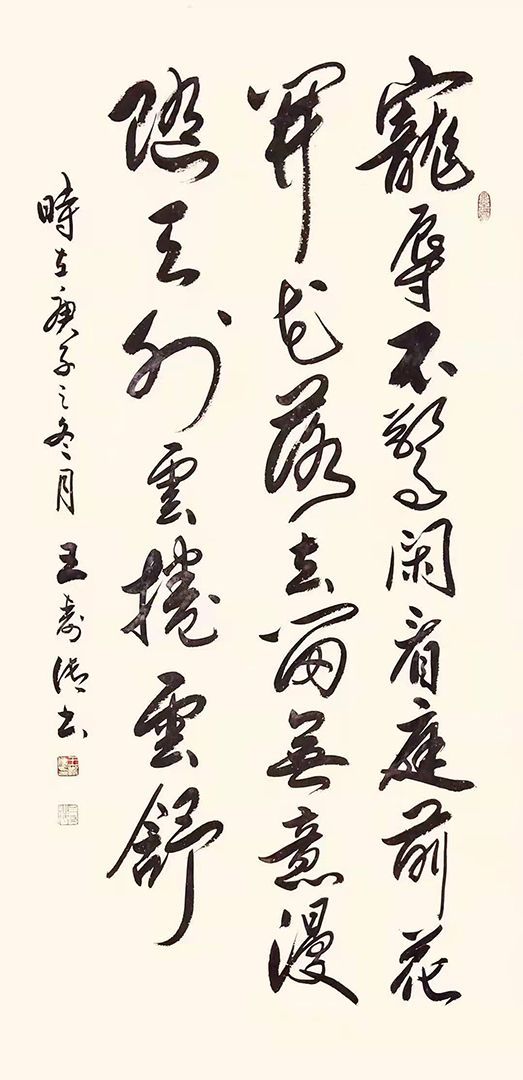 寵辱不驚閑看庭前花
開花落去留無意漫
隨天外雲捲雲舒
時在庚子之冬月 王壽書